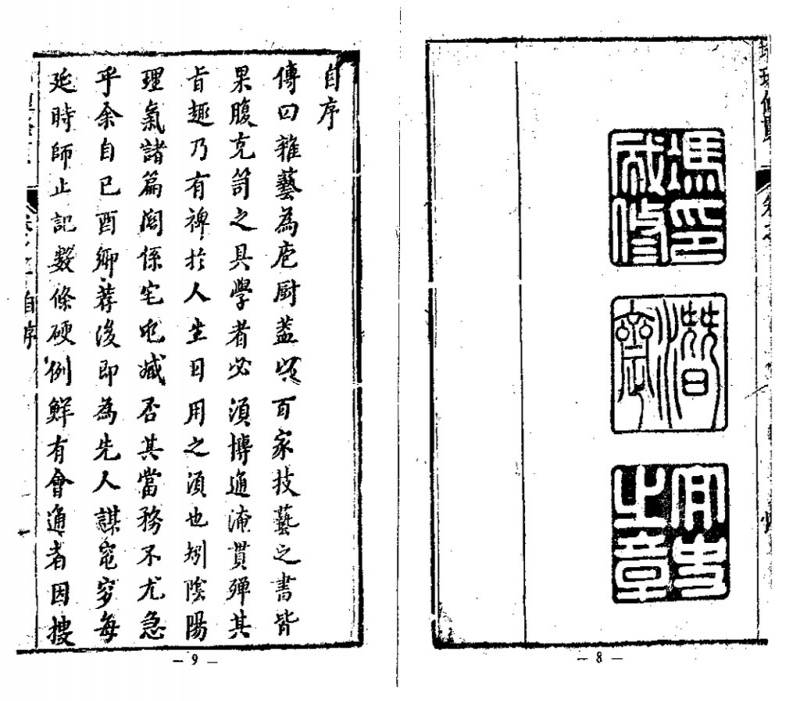 馮印
成修
潛
齋
之章
— 8 —
自序
傳曰雜藝為庖廚蓋以百家技藝之書皆
果腹充笥之具學者必須博通淹貫殫其
旨趣乃有裨於人生日用之須也矧陰陽
理氣諸篇関係宅兆臧否其當務不尤急
乎余自己酉鄉荐後即為先人謀窀穸每
延時師止記數條硬例鮮有會通者因搜
卷之一自序
— 9 —